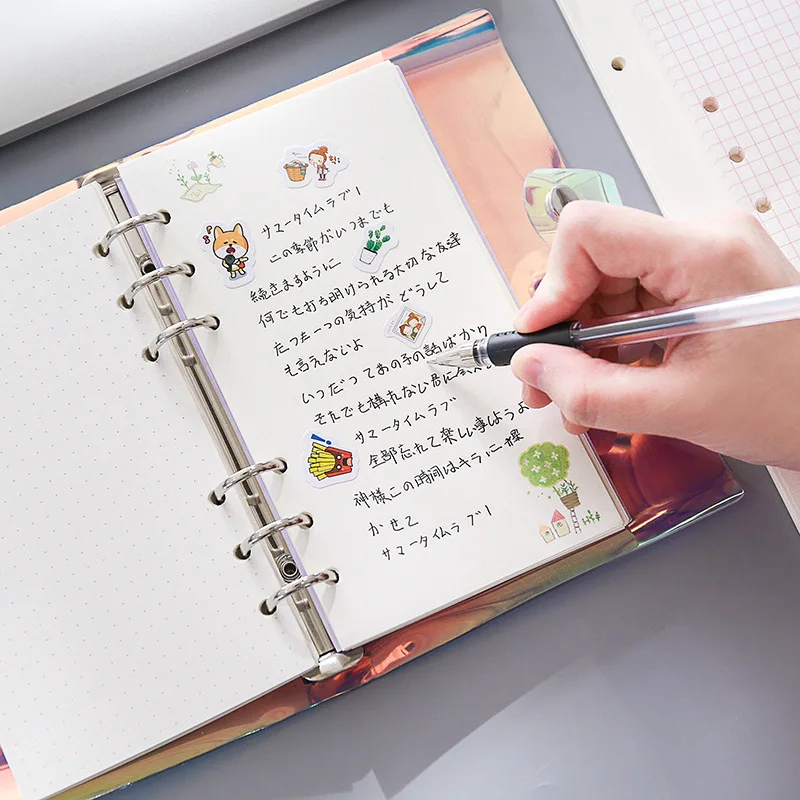 サマータイムラブ!
この季節がいつまでも
続きますように
何でも打ち明けられる大切な友達
たった一つの気持が どうして
も言えないよ
いつだってあの子の話ばかり
それでも構れない君に
サマータイムラブ
全部忘れて楽しい事しようよ
神様この時間はキラに
かせて
サマータイムラブ!